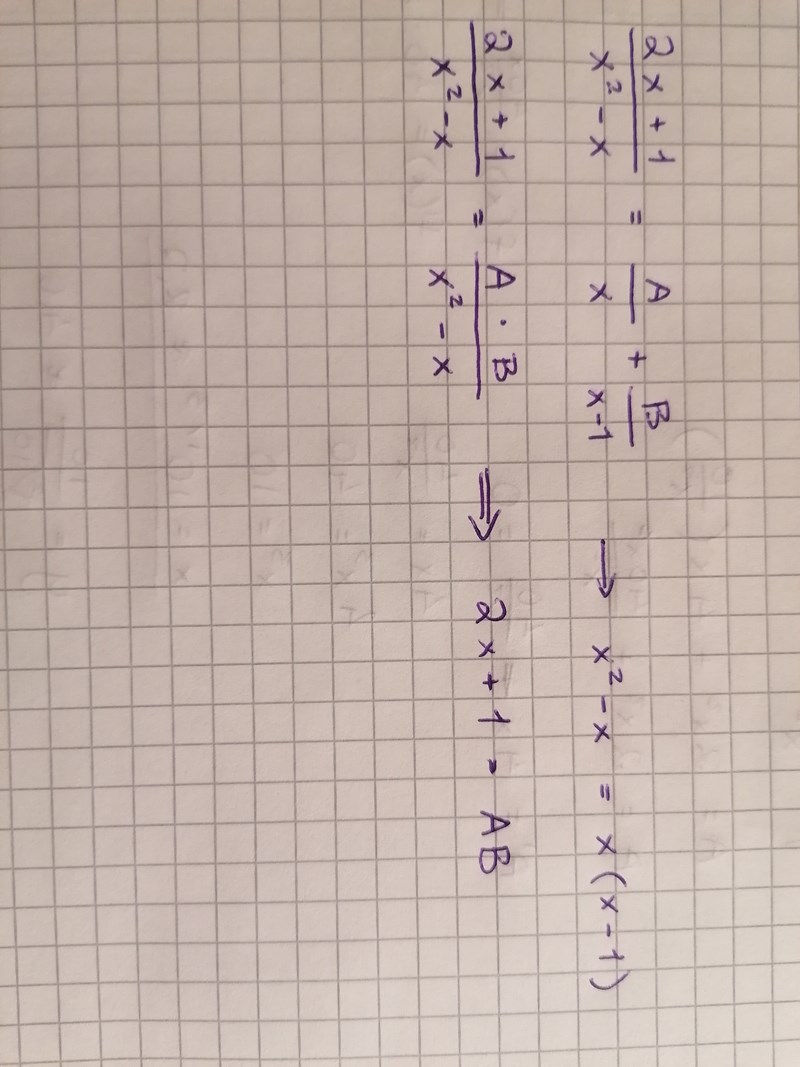 (2x+1)/(x²-x) = A/x + B/(x-1) → x²-x = x(x-1)
(2x+1)/(x²-x) = (A·B)/(x²-x) ⇒ 2x+1 = AB